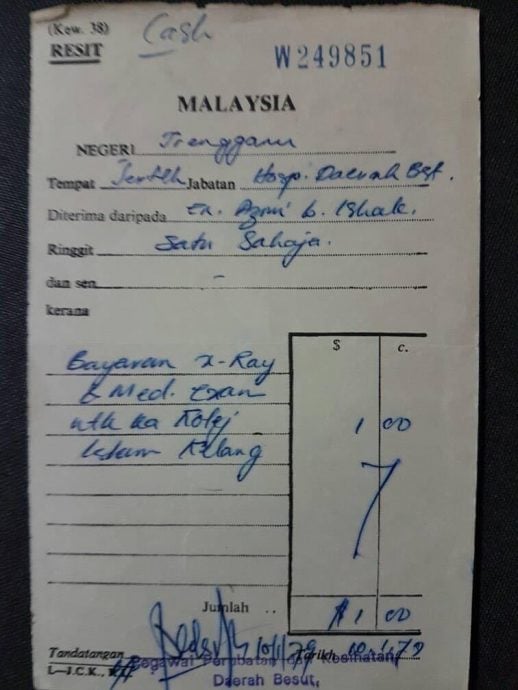 (Kew. 38)
Cash
RESIT
W249851
MALAYSIA
NEGERI Trengganu
Tempat Jerteh Jabatan Hosp. Daerah Bst.
Diterima daripada En. Azmi b. Ishak.
Ringgit Satu Sahaja.
dan sen -
kerana
$ c.
Bayaran X-Ray
& Med. Exam
utk ka Kolej 1 00
Islam Kelang
Jumlah .. $1 00
Tandatangan 10/1/79 Tarikh 10.1.79
Pegawai Perubatan dan Kesihatan
L—J.C.K., K.L.
Daerah Besut,